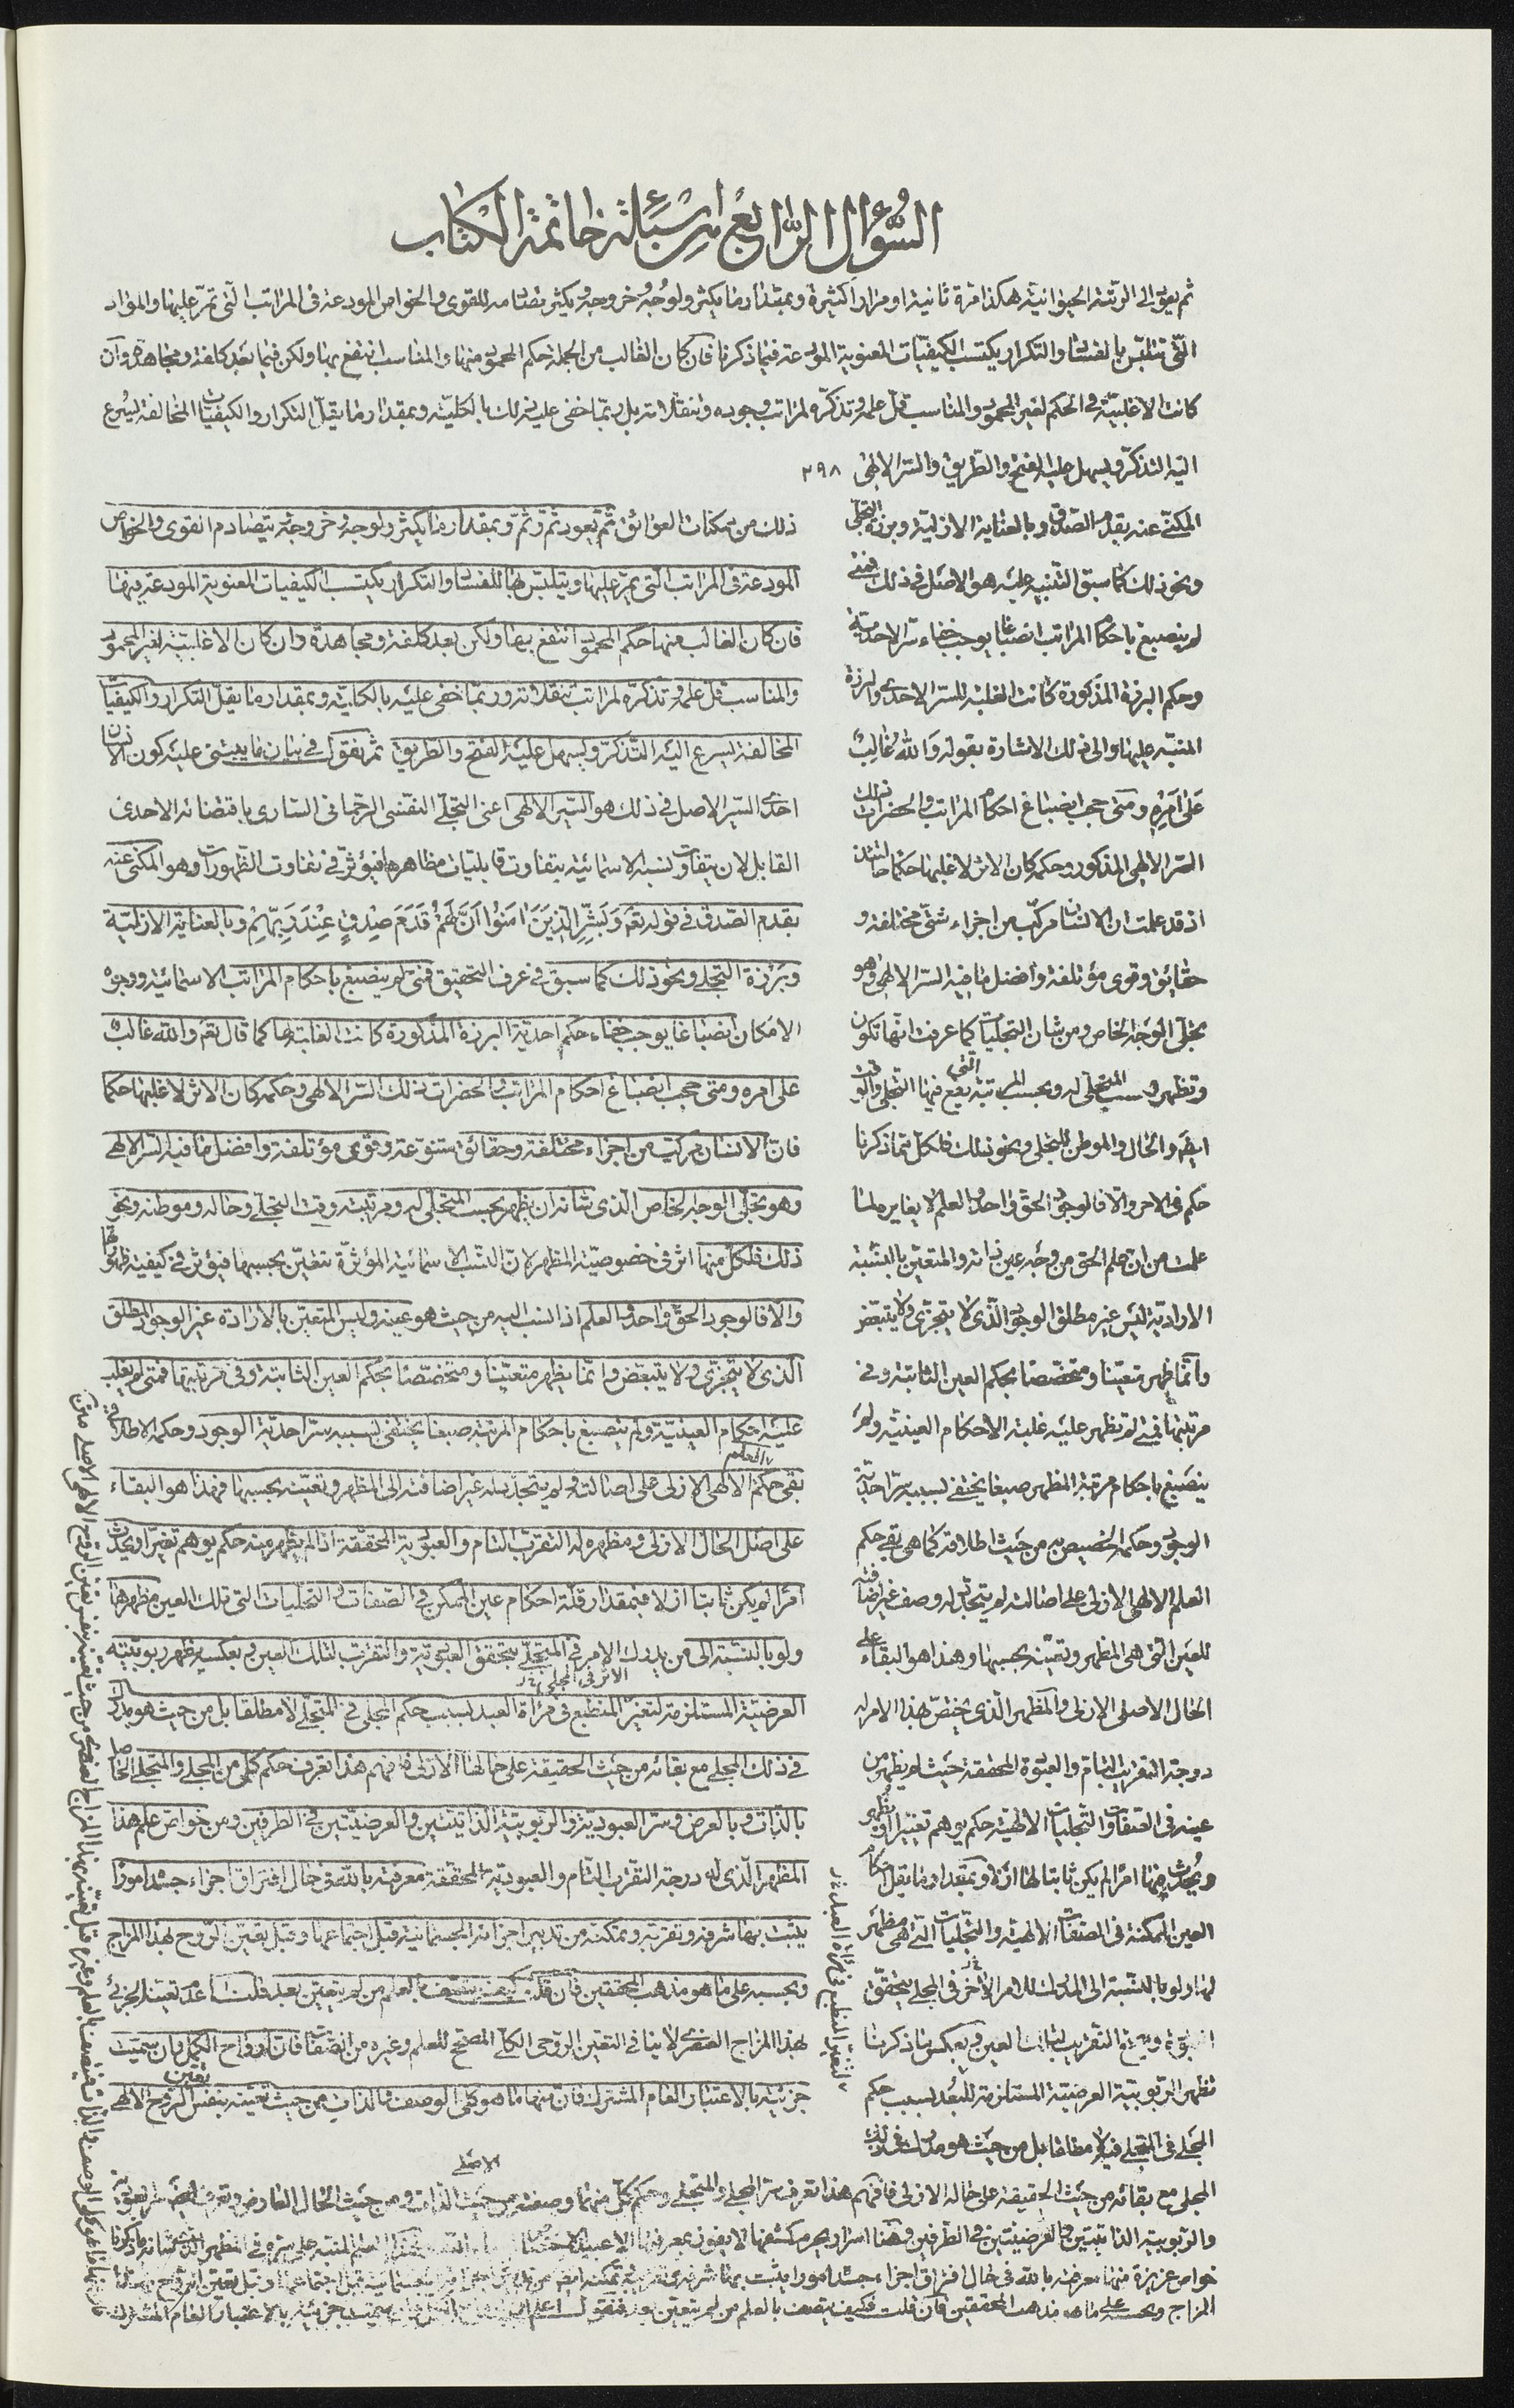 السُّؤال الرّابع اسئلة خاتمة الكتاب
ثم يعود الى الرتبة الحيوانية هكذا مرة ثانية او مرارا كثيرة وبمقدار ما يكثر ولوجه وخروجه يكثر تصادمه للقوى والخواص المودعة فى المراتب التى تمرّ عليها والموّاد
التى تتلبّس بها للنشأت والتكرار يكتسب الكيفيّات المعنوية المودعة فيما ذكرنا فان كان الغالب من الجملة حكم المحمود منها والمناسب انتفع بها ولكن فيما بعد كلفة ومجاهدة وان
كانت الاغلبيّة فى الحكم لغير المحمود والمناسب قلّ علمه وتذكّره لمراتب وجوده وتنقلاته بل ربّما خفى عليه ذلك بالكليّة وبمقدار ما يقلّ التكرار والكيفيّات المخالفة يسرع
اليه التذكّر ويسهل عليه الفتح والطريق والسّر الالهى ٢٩٨
المكنّى عنه بقدم الصدق وبالعناية الازليّة وبرزة التجلّى
ونحو ذلك كما سبق التنبيه عليه هو الاصل فى ذلك فمتى
لم ينصبغ باحكام المراتب انصباغا يوجب خفاء الاحديّة
وحكم البرزة المذكورة كانت الغلبة للسرّ الاحدى والبرزة
المنبّه عليها والى ذلك الاشارة بقوله وَالله غَالِبٌ
عَلى اَمرِهِ ومتى حجب انصباغ احكام المراتب والحضرات ذلك
السّر الالهى المذكور وحكمه كان الاثر لاغلبها حكما حالتئذ
اذ قد علمت ان الانسان مركّب من اجزاء شتى مختلفة و
حقائق وقوى مؤتلفة وافضل ما فيه السرّ الالهى وهو
تجلّى الوجه الخاص ومن شان التجليّات كما عرفت انّها تكون
وتظهر بحسب المتجلّى له وبحسب المرتبة التى يقع فيها التجلى والوقت
ايضا والحال والموطن للتجلى ونحو ذلك فلكلّ مما ذكرنا
حكم فى الامر والّا فالوجود الحق واحد والعلم لا يغايره لما
علمت من ان علم الحق من وجه عين ذاته والمتعيّن بالنسبة
الاراديّة ليس غير مطلق الوجود الّذى لا يتجزّى ولا يتبعّض
وانّما ظهر متعيّنا ومتخصّصا بحكم العين الثابتة وفى
مرتبتها فمتى لم تظهر عليه غلبة الاحكام العينيّة ولم
ينصبغ باحكام مرتبة المظهر صبغا يختفى بسببه سرّ احديّة
الوجود وحكمه الخصيص به من حيث اطلاقه كما هى بقى حكم
العلم الالهى الازلى على اصالته لم يتجدّد له وصف غير اضافته
للعين الّتى هى المظهر وتعيّنه بحسبها وهذا هو البقاء على
الحال الاصلى الازلى والمظهر الّذى يختصّ بهذا الامر له
درجة التقريب التام والعبودة المحققة حيث لم يظهر من
عينه فى الصفات والتجليات الالهية حكم يوهم تغييرا او يظهر
ويحدث فيها امرا لم يكن ثابتا لها ازلا وبمقدار ما يقلّ احكام
العين الممكنة فى الصفات الالهيّة والتجليات التى هى مظهر
لها ولو بالنسبة الى المدرك للامر الاخر فى المجلى يتحقّق
تظهر الربوبيّة العرضيّة المستلزمة للبعد بسبب حكم
المجلى فى المتجلى فيه لا مطلقا بل من حيث هو مدرك فى ذلك
ذلك من ممكنات العوائق ثم يعود ثمّ وثمّ وبمقدار ما يكثر ولوجه وخروجه يتصادم القوى والخواص
المودعة فى المراتب الّتى يمرّ عليها ويتلبّس بها للنشأت والتكرار يكتسب الكيفيات المعنوية المودعة فيها
فان كان الغالب منها حكم المحمود انتفع بها ولكن بعد كلفة ومجاهدة وان كان الاغلبيّة لغير المحمود
والمناسب قلّ علمه وتذكّره لمراتب تنقلاته وربّما خفى عليه بالكليّة وبمقدار ما يقلّ التكرار والكيفيّات
المخالفة يسرع اليه التذكّر ويسهل عليه الفتح والطريق ثمّ نقول فى بيان ما يبتنى عليه كون الانسان
احدى السّير الاصل فى ذلك هو السّر الالهى اعنى التجلّى النفسى الرحمانى السارى باقتضائه الاحدى
القابل لان يتفاوت نسبه الاسمائيّة بتفاوت قابليات مظاهرها فيؤثر فى تفاوت الظهورات وهو المكنى عنه
بقدم الصّدق فى قوله تعَ وَبَشِّرِ الَّذينَ امَنُوا اَنَّ لَهُمْ قَدَمَ صِدْقٍ عِنْدَ رَبِّهِمْ وبالعناية الازليّة
وبرزة التجلى ونحو ذلك كما سبق فى عرف التحقيق فمتى لم ينصبغ باحكام المراتب الاسمائيّة ووجوه
الامكان انصباغا يوجب خفاء حكم احديّة البرزة المذكورة كانت الغلبة لها كما قال تعَ والله غالبٌ
على امره ومتى حجب انصباغ احكام المراتب والحضرات ذلك السّر الالهى وحكمه كان الاثر لاغلبها حكما
فانّ الانسان مركّب من اجزاء مختلفة وحقائق متنوّعة وقوى مؤتلفة وافضل ما فيه السّر الالهى
وهو تجلّى الوجه الخاص الّذى شانه ان يظهر بحسب المتجلّى له ومرتبته ووقت التجلّى وحاله وموطنه ونحو
ذلك فلكلّ منها اثر فى خصوصيّة المظهر لانّ النسب الاسمائيّة المؤثّرة تتعيّن بحسبها فيؤثر فى كيفية ظهورها
والا فالوجود الحقّ واحد والعلم اذا نسب اليه من حيث هو عينه وليس المتعيّن بالارادة غير الوجود المطلق
الّذى لا يتجزّى ولا يتبعّض وانّما يظهر متعيّنا ومتخصّصا بحكم العين الثابتة وفى مرتبتها فمتى لم يغلب
عليه احكام العينيّة ولم ينصبغ باحكام المرتبة صبغا يختفى بسببه سرّ احديّة الوجود وحكمه الاطلاقى
بقى حكم العلم الالهى الازلى على اصالته ولم يتجدّد له غير اضافته الى المظهر وتعيّنه بحسبها فهذا هو البقاء
على اصل الحال الازلى ومظهره له التقرّب التام والعبوديّة المحققة اذا لم يظهر منه حكم يوهم تغيّرا ويحدث
امرا لم يكن ثابتا ازلا فبمقدار قلّة احكام عين الممكن فى الصفات والتجليات التى تلك العين مظهرها
ولو بالنسبة الى من يدرك الامر فى المتجلّى يتحقق العبوديّة والتقرّب لتلك العين وبعكسه يظهر ربوبيّته
العرضيّة المستلزمة لتغيّر المنطبع فى مرآة العبد بسبب حكم المجلى فى المتجلى لا مطلقا بل من حيث هو مدرك
فى ذلك المجلى مع بقائه من حيث الحقيقة على حالها الازلى فافهم هذا تعرف حكم كلّ من المجلى والمتجلى الخاص
بالذات وبالعرض وسرّ العبوديّة والربوبيّة الذاتيّتين والعرضيّتين فى الطرفين ومن خواصّ علم هذا
المظهر الّذى له درجة التقرّب التام والعبوديّة المحققة معرفته بالله فى حال افتراق اجزاء جسده امورا
يثبت بها شرفه وتقرّبه وتمكّنه من تدبير اجزائه الجسمانية قبل اجتماعها وقبل تعيّن الروح بهذا المزاج
وبحسبه على ما هو مذهب المحققين فان قلت كيف يتصف بالعلم من لم يتعيّن بعد قلت عدم تعيّنه الجزئى
بهذا المزاج العنصرى لا ينافى التعيّن الروحى الكلّى المصحّح للعلم وغيره من الصفات فانّ ارواح الكمّل وان سميّت
جزئيّة بالاعتبار العام المشترك فانّ منها ما هو كلى الوصف والذات من حيث تعيّنه بنفس تعيّن الروح الالهى
المجلى مع بقائه من حيث الحقيقة على حاله الازلى فافهم هذا تعرف سرّ المجلى والمتجلى وحكم كلّ منهما وصفته من حيث الذات ومن حيث الحال العارض
والربوبيّة الذاتيّتين والعرضيّتين فى الطرفين وهنا اسرار يحرم كشفها لا يفوز بمعرفتها الا
خواص عزيزة منها معرفته بالله فى حال افتراق اجزاء جسده امورا يثبت بها شرفه
المزاج وبحسبه على ما هو مذهب المحققين فان قلت فكيف يتصف بالعلم من لم يتعيّن بعد فنقول اعلم